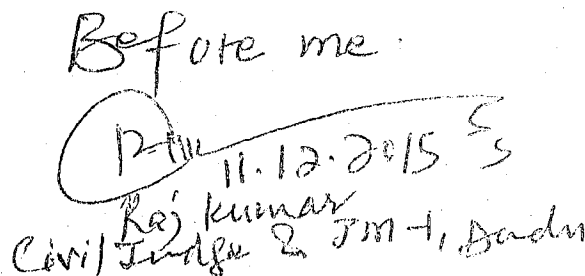 Before me.
11.12.2015
Raj Kumar
Civil Judge & JM-I, Dadu